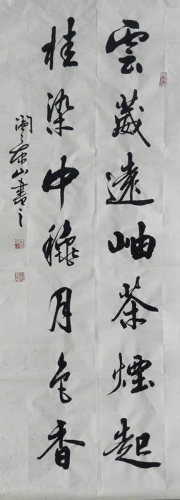 雲藏遠岫茶煙起
桂染中穐月色香
山書之